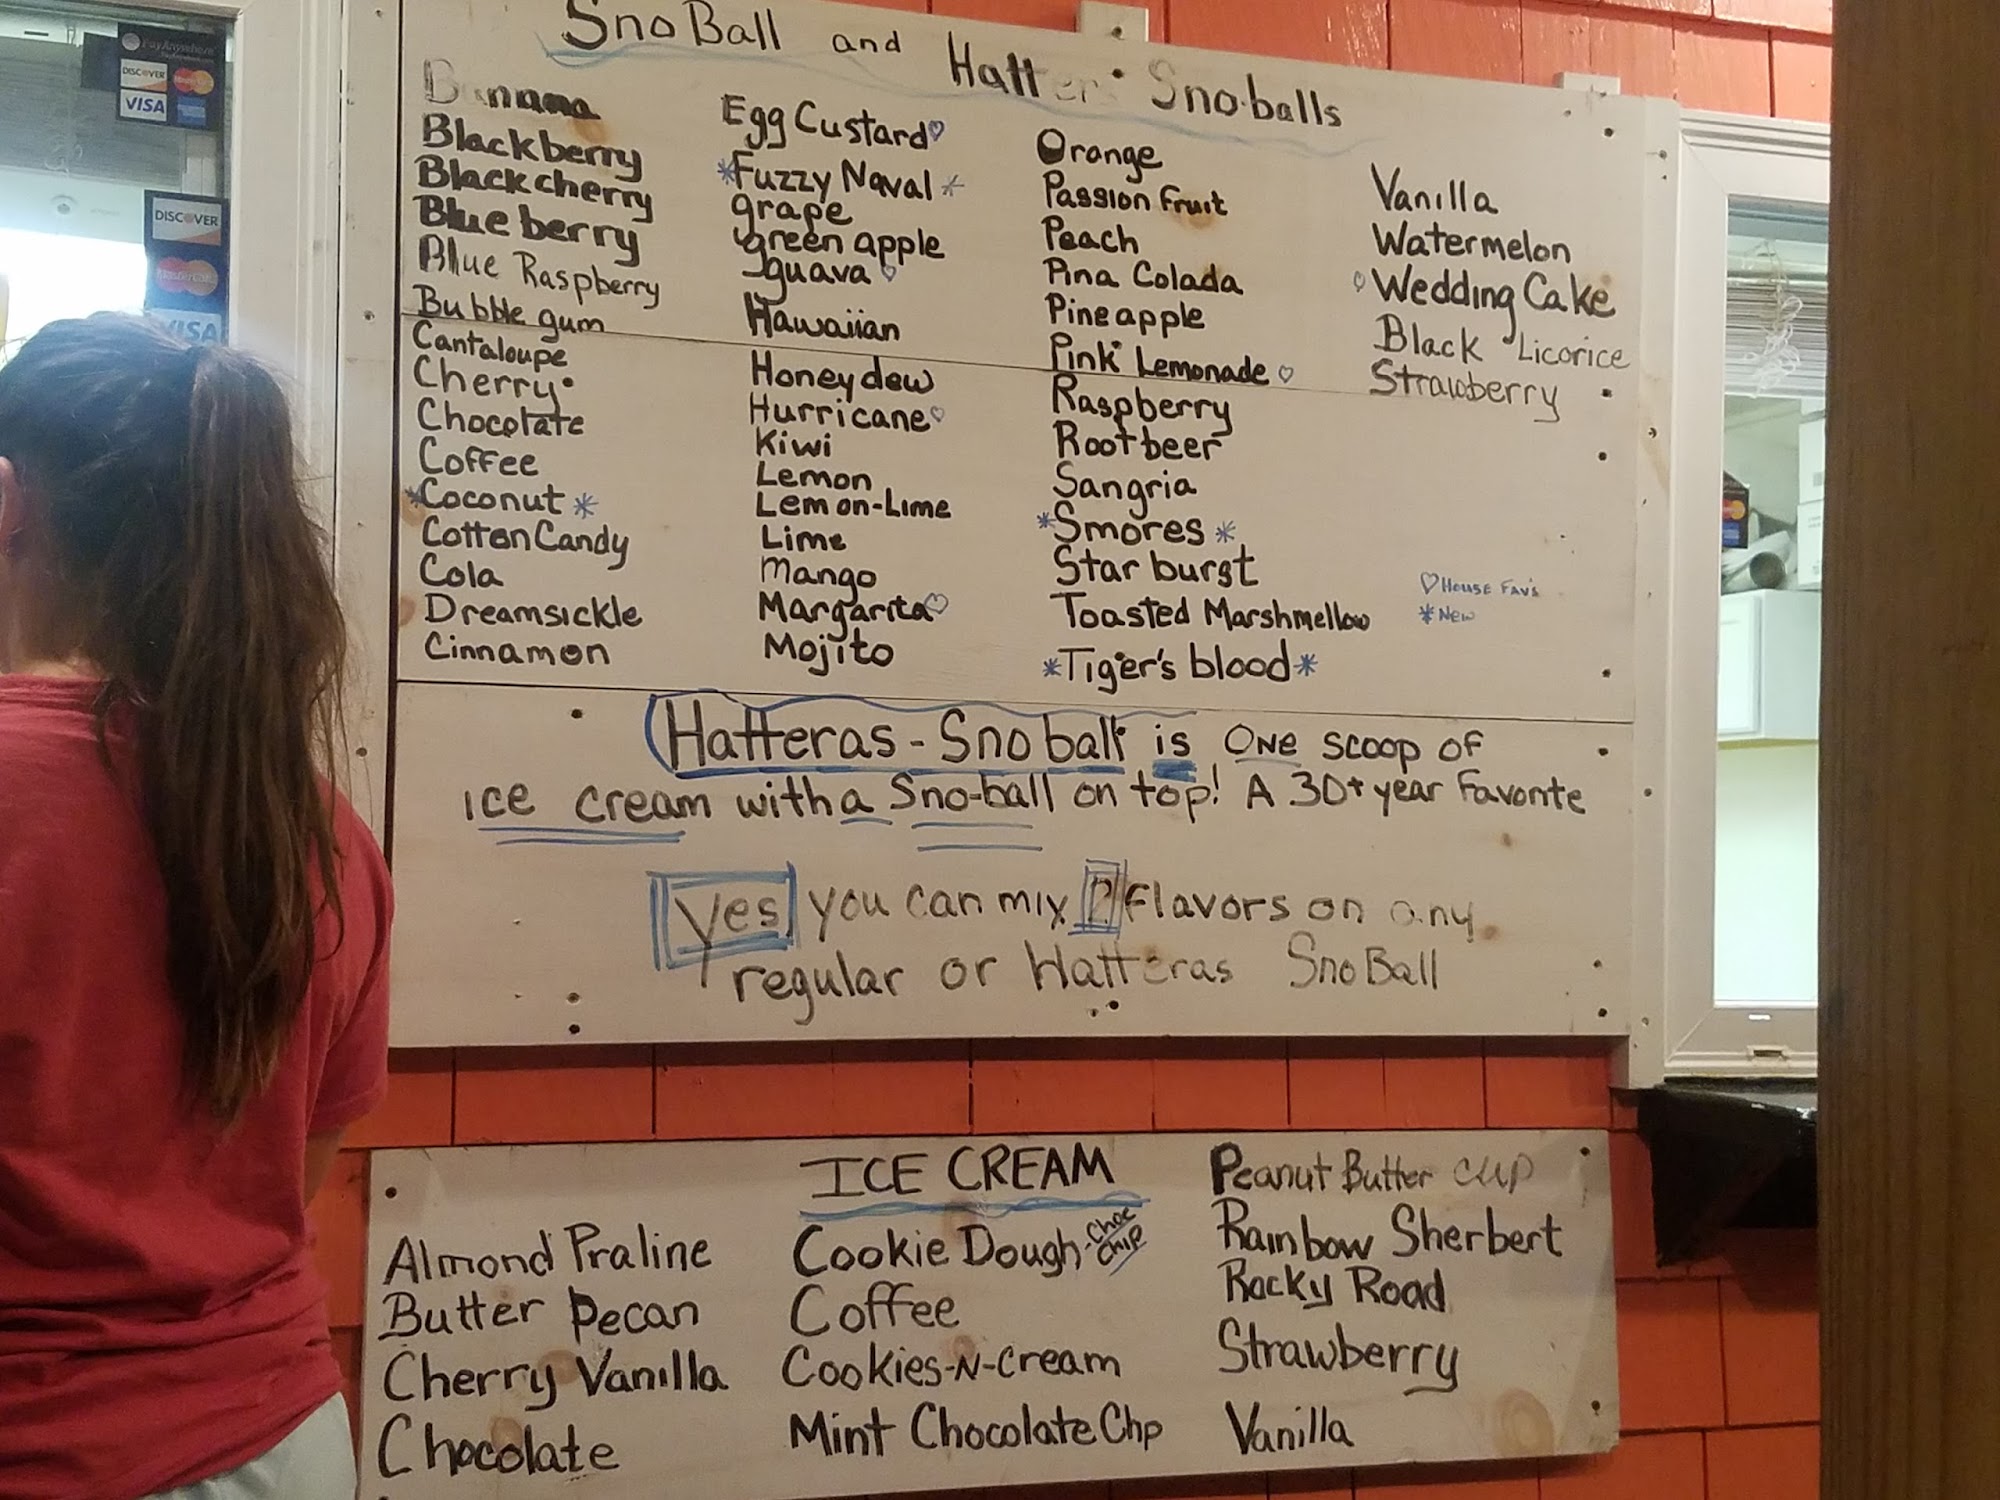 SnoBall and Hatter Sno-balls
Banana
Blackberry
Blackcherry
Blue berry
Blue Raspberry
Bubble gum
Cantaloupe
Cherry
Chocolate
Coffee
*Coconut *
Cotton Candy
Cola
Dreamsickle
Cinnamon
Egg Custard♡
*Fuzzy Naval *
grape
green apple
guava ♡
Hawaiian
Honeydew
Hurricane♡
Kiwi
Lemon
Lemon-Lime
Lime
Mango
Margarita♡
Mojito
Orange
Passion Fruit
Peach
Pina Colada
Pineapple
Pink Lemonade ♡
Raspberry
Rootbeer
Sangria
*Smores *
Star burst
Toasted Marshmellow
*Tiger's blood*
Vanilla
Watermelon
♡Wedding Cake
Black Licorice
Strawberry
♡House Fav's
*New
Hatteras-Snoball is ONE scoop of
ice cream with a Sno-ball on top! A 30+ year Favorite
Yes you can mix 2 Flavors on any
regular or Hatteras SnoBall
ICE CREAM
Almond Praline
Butter Pecan
Cherry Vanilla
Chocolate
Cookie Dough-Choc Chip
Coffee
Cookies-N-Cream
Mint Chocolate Chp
Peanut Butter Cup
Rainbow Sherbert
Rocky Road
Strawberry
Vanilla
PayAnywhere
DISCOVER
MasterCard
VISA
DISCOVER
MasterCard
VISA